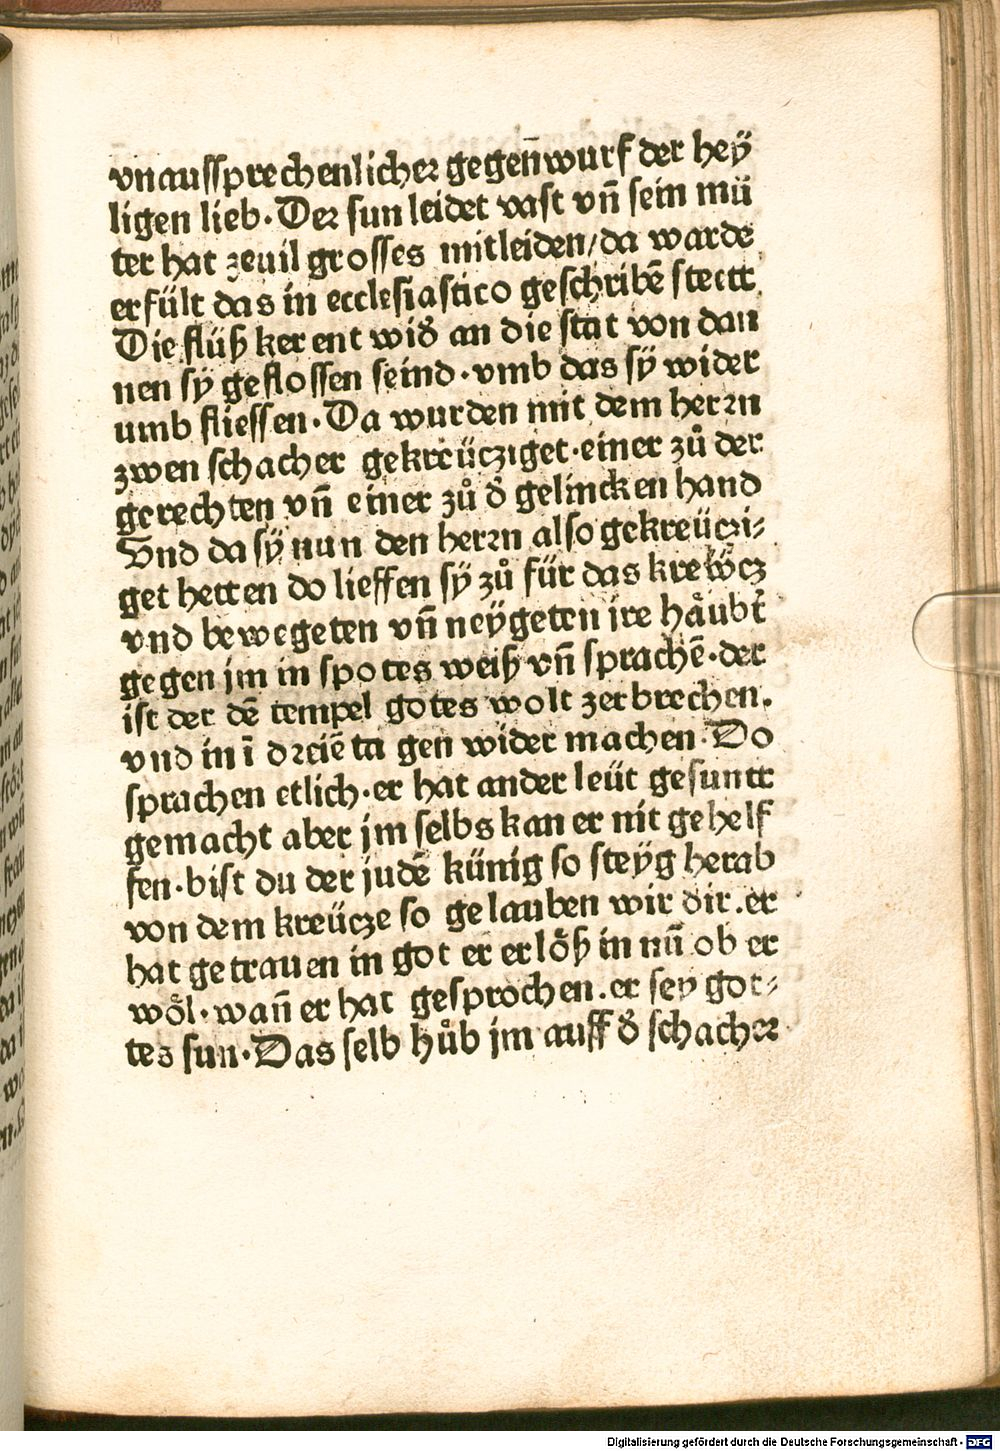 vnaussprechenlicher gegen̄wurf der heÿ
ligen lieb. Der sun leidet vast vn̄ sein mů
ter hat zeuil grosses mitleiden/da warde
erfült das in ecclesiastico geschribē steett.
Die flüß kerent wid̕ an die stat von dan
nen sÿ geflossen seind. vmb das sÿ wider
umb fliessen. Da wurden mit dem herrn
zwen schacher gekreücziget. einer zů der
gerechten vn̄ einer zů d̕ gelincken hand
Vnd da sÿ nun den herrn also gekreüczi⸗
get hetten do lieffen sÿ zů für das krewcz
vnd bewegeten vn̄ neÿgeten ire häubt
gegen jm in spotes weiß vn̄ sprachē. der
ist der dē tempel gotes wolt zerbrechen.
vnd in ī dreiē tagen wider machen. Do
sprachen etlich. er hat ander leüt gesuntt
gemacht aber jm selbs kan er nit gehelf
fen. bist du der judē künig so steÿg herab
von dem kreücze so gelauben wir dir. er
hat getrauen in got er erlöß in nū ob er
wöl. wan̄ er hat gesprochen. er sey got⸗
tes sun. Das selb hůb jm auff d̕ schacher
Digitalisierung gefördert durch die Deutsche Forschungsgemeinschaft - DFG